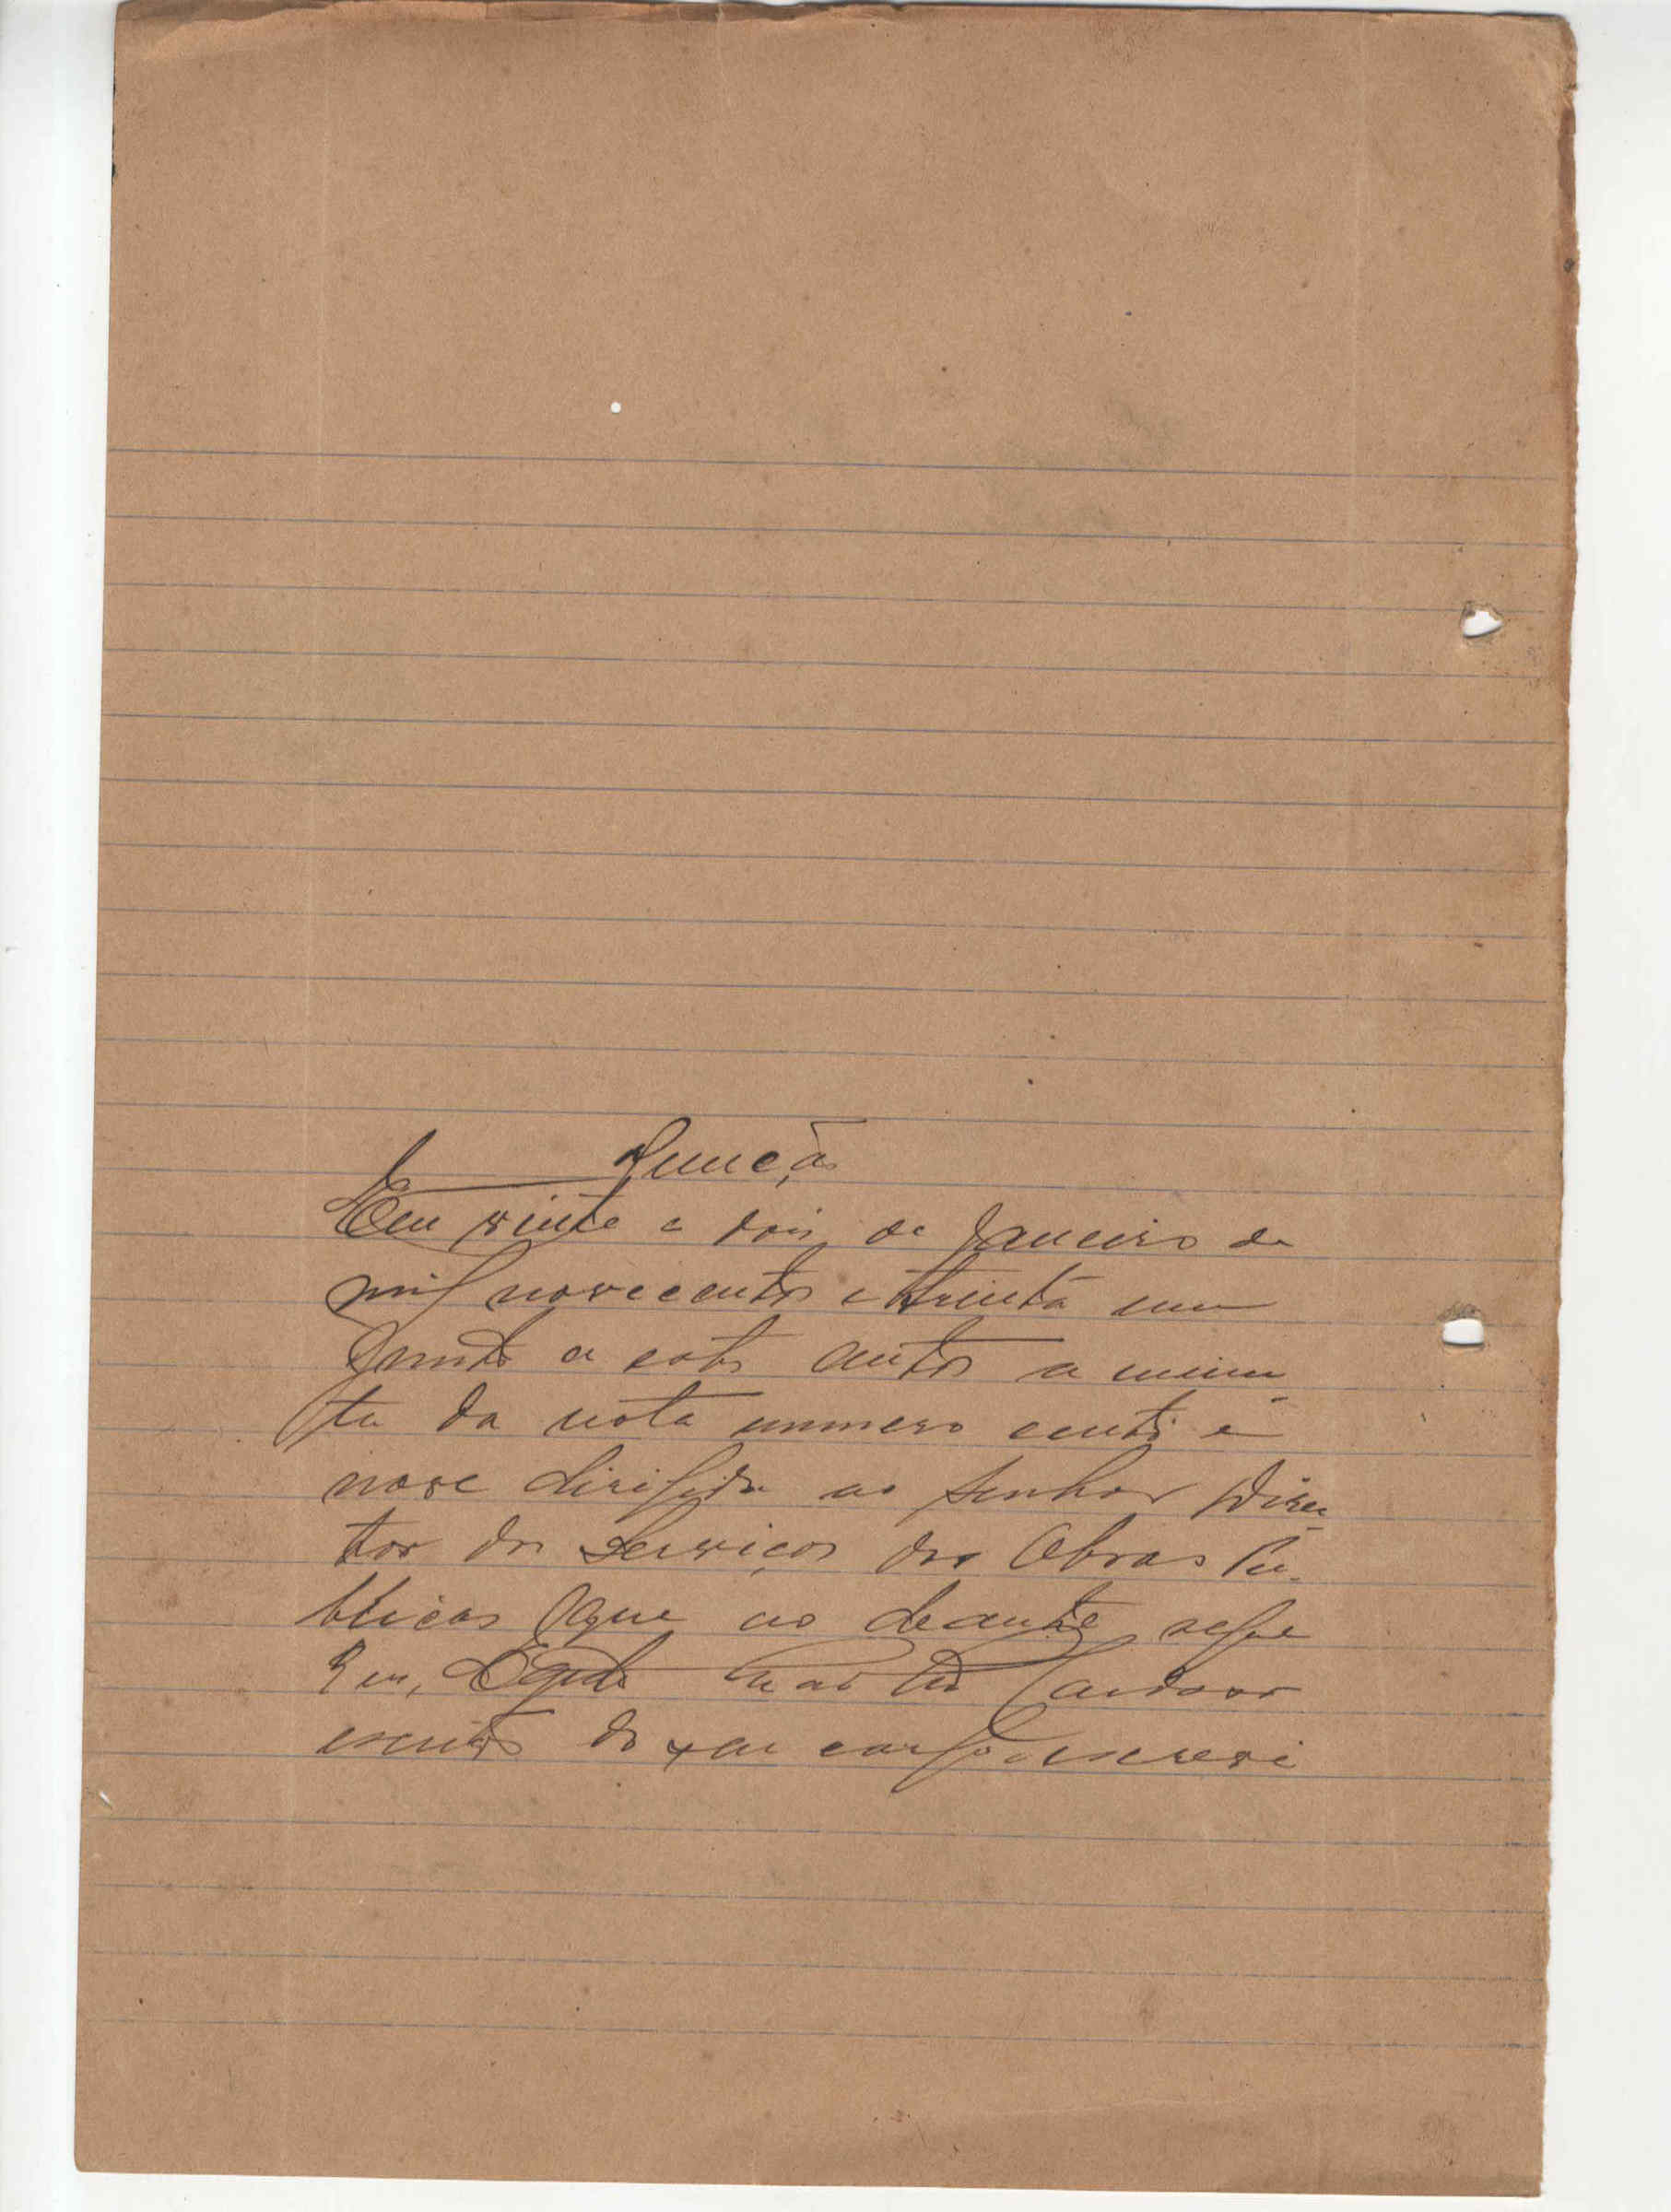 Junção
Em vinte e dois de Janeiro de
mil novecentos e trinta um
Junto a estes autos a minu-
ta da nota numero cento e
nove dirigida ao Senhor Direc-
tor dos Serviços das Obras Pu-
blicas que ao deante segue
E eu, Cardoso
escrivão do seu cargo o escrevi